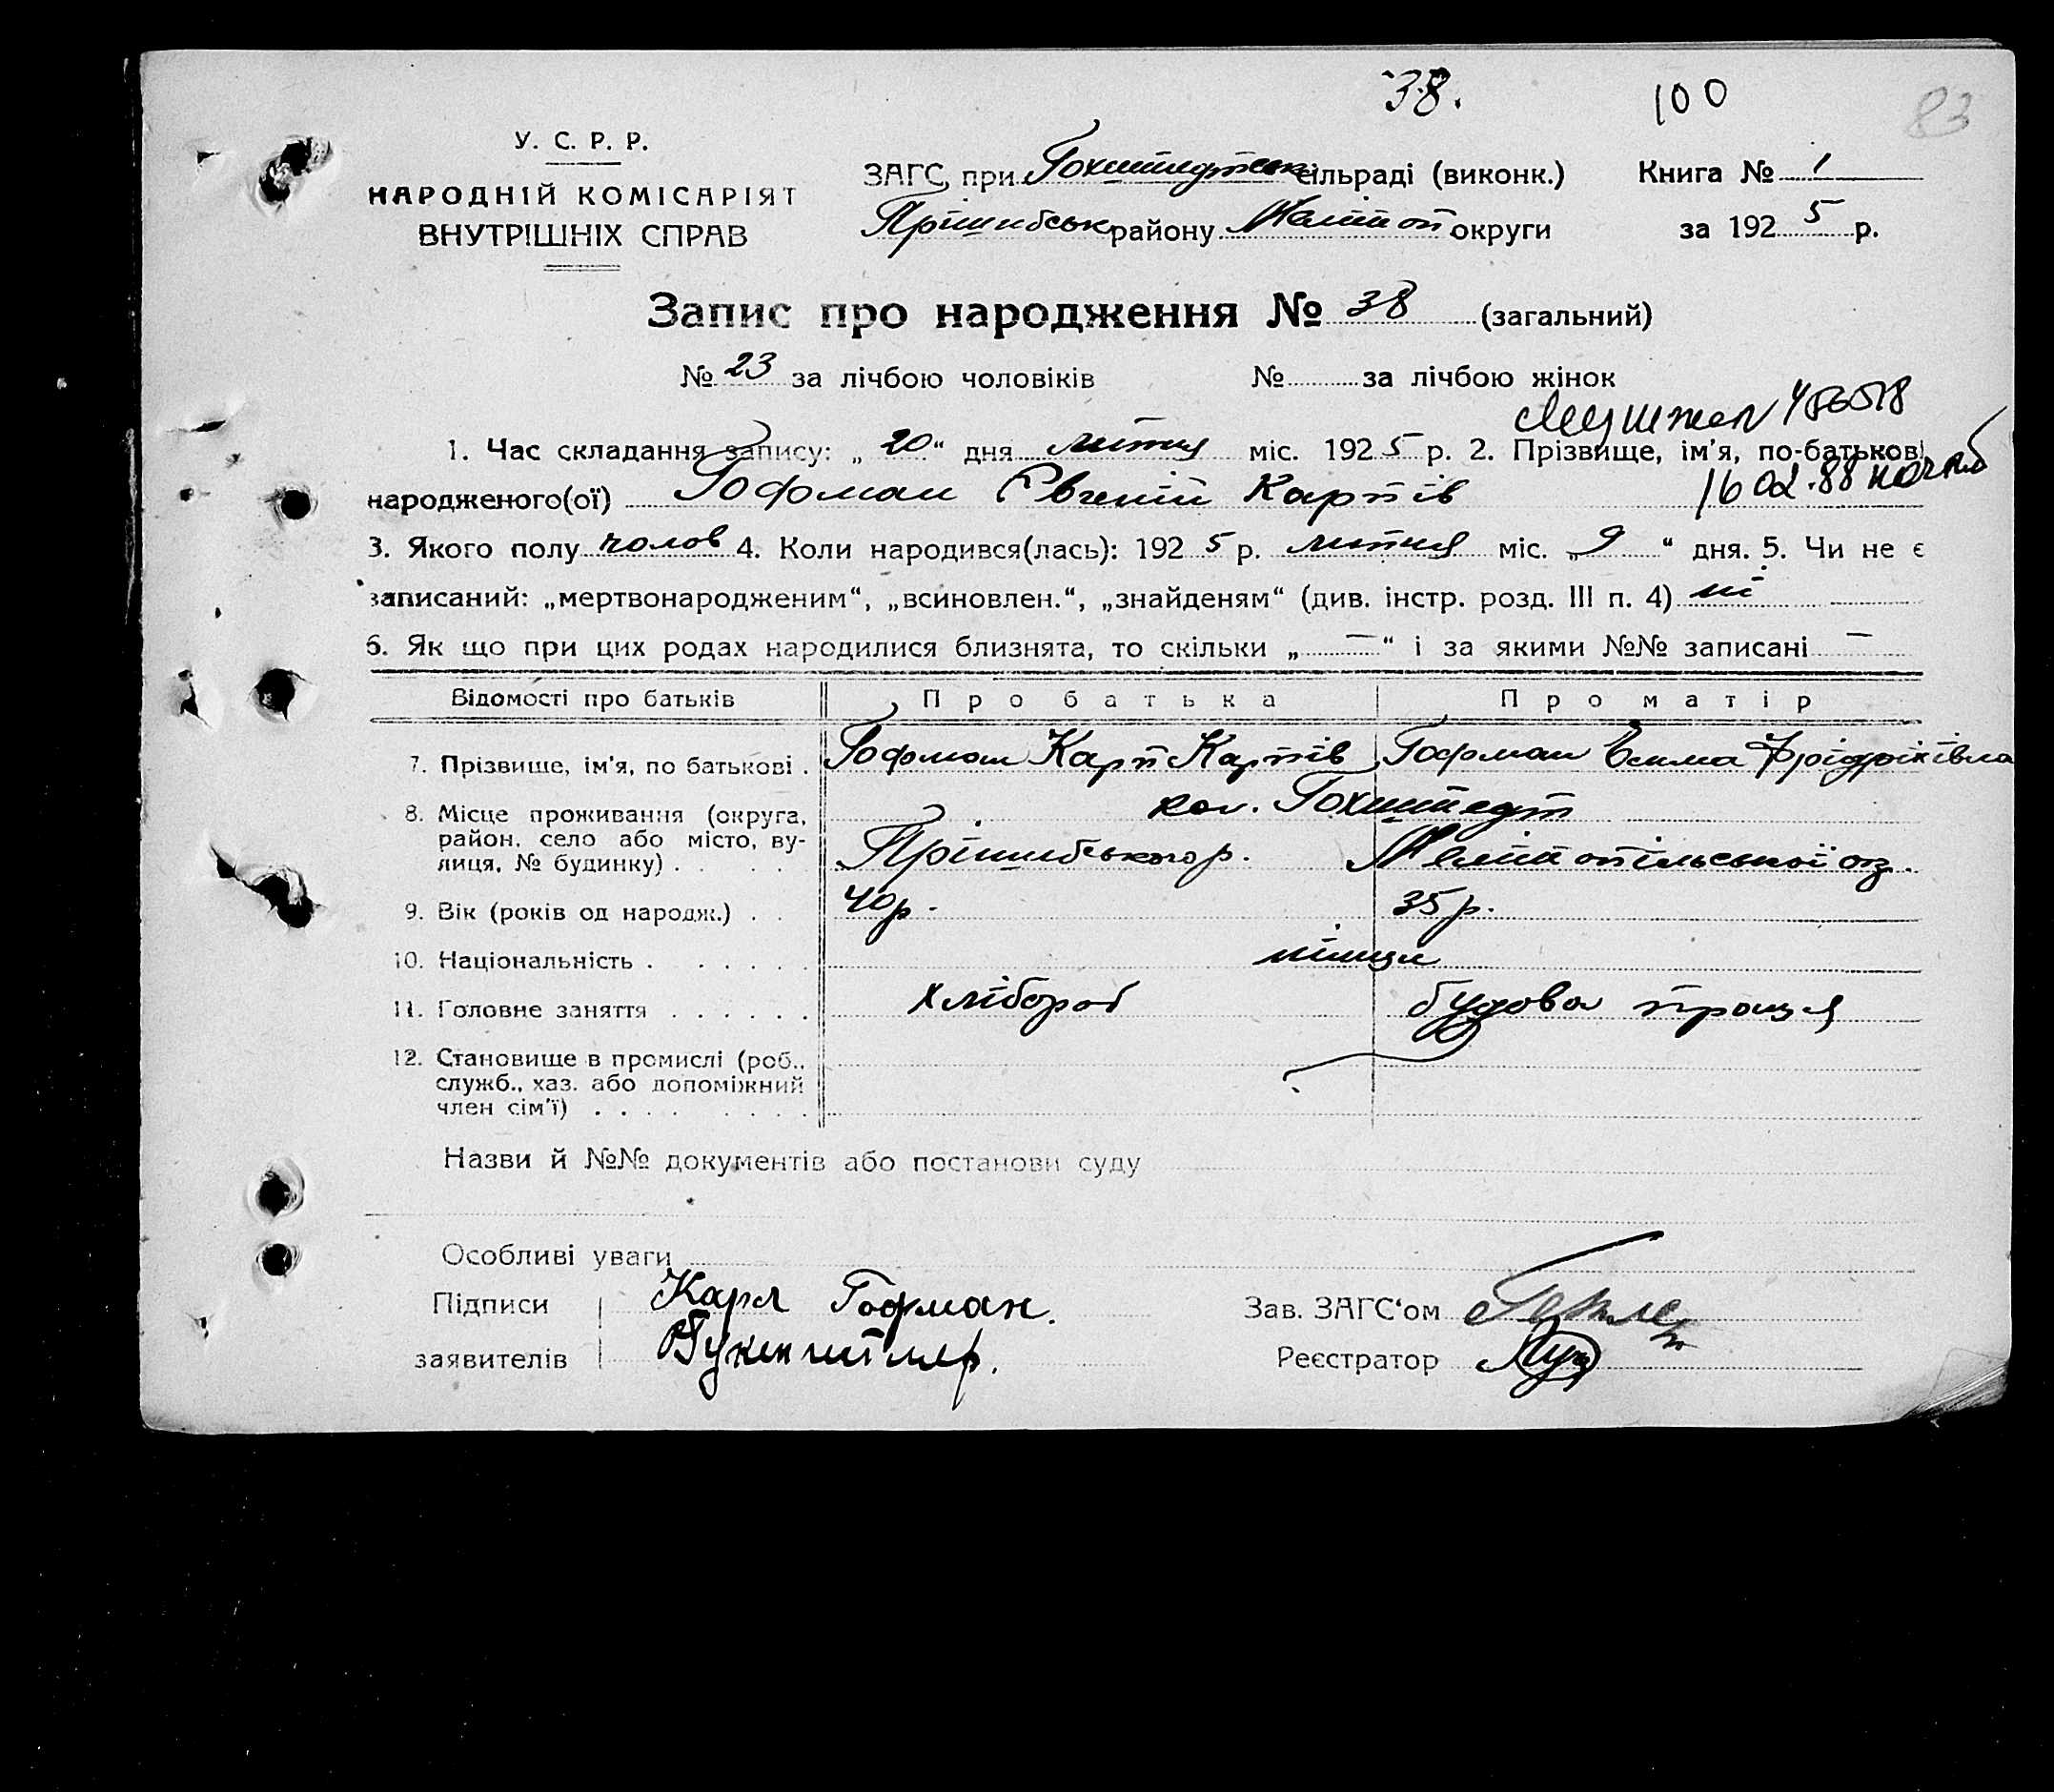 38. 100 83
У. С. Р. Р.
НАРОДНІЙ КОМІСАРІЯТ
ВНУТРІШНІХ СПРАВ
ЗАГС при Гохштедтськ сільраді (виконк.) Книга № 1
Прішибськ району Меліtoп округи за 1925 р.
Запис про народження № 38 (загальний)
№ 23 за лічбою чоловіків № за лічбою жінок
1. Час складання запису: „20“ дня лютня міс. 1925 р. 2. Прізвище, ім'я, по-батькові
народженого(ої) Гофман Євгеній Карлів 16 02.88
3. Якого полу чолов 4. Коли народився(лась): 1925 р. лютня міс. „9“ дня. 5. Чи не є
записаний: „мертвонародженим“, „всиновлен.“, „знайденям“ (див. інстр. розд. III п. 4) ні
6. Як що при цих родах народилися близнята, то скільки „—“ і за якими №№ записані —
Відомості про батьків Про батька Про матір
7. Прізвище, ім'я, по батькові . Гофман Карл Карлів Гофман Емма Фрідріхівна
8. Місце проживання (округа, район, село або місто, вулиця, № будинку) . . . . кол. Гохштедт
Прішибського р. Мелітопільської ок.
9. Вік (років од народж.) . . 40 р. 35 р.
10. Національність . . . . . . німци
11. Головне заняття . . . . . . хлібороб будова праця
12. Становище в промислі (роб., служб., хаз. або допоміжний член сім'ї) . . . . . . . .
Назви й №№ документів або постанови суду
Особливі уваги
Підписи Карл Гофман. Зав. ЗАГС'ом
заявителів Реєстратор